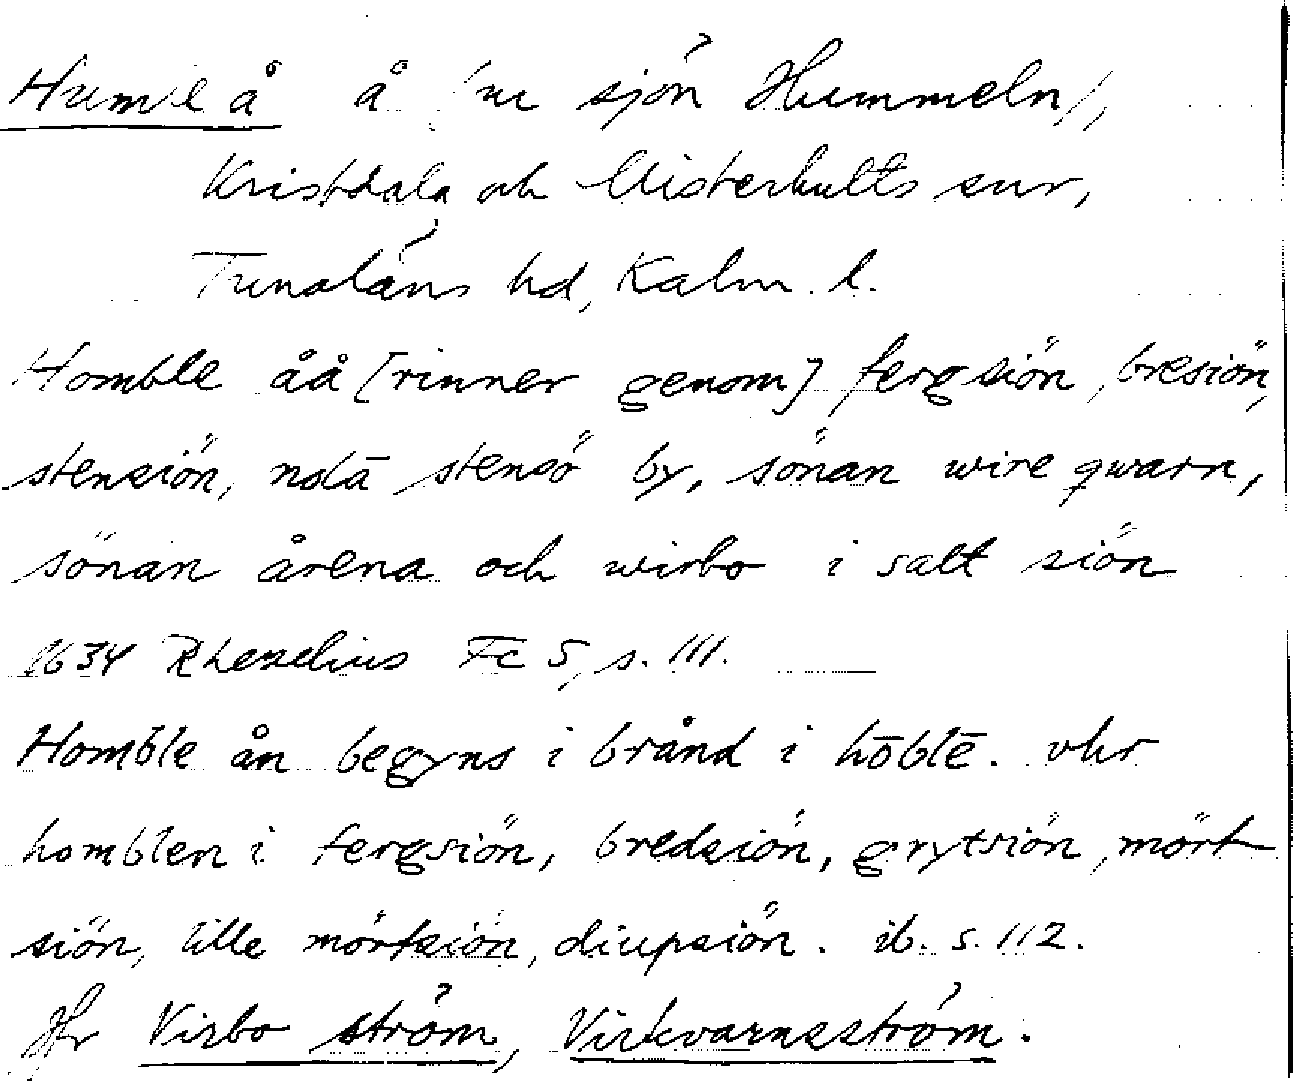 Humleå å (ur sjön Hummeln),
Kristdala och Misterhults snr,
Tunaläns hd, Kalm. l.
Homble åå [rinner genom] fergsiön, bresiön,
stensiön, nolā stensö by, sönan wire qwarn,
sönan årena och wirbo i salt siön
1634 Rhezelius Fc 5, s. 111.
Homble ån begyns i brånd i hōblē. vhr
homblen i fergsiön, bredsiön, grytsiön, mört
siön, lille mörtsiön, diupsiön. ib. s. 112.
Jfr Virbo ström, Virkvarnsström.